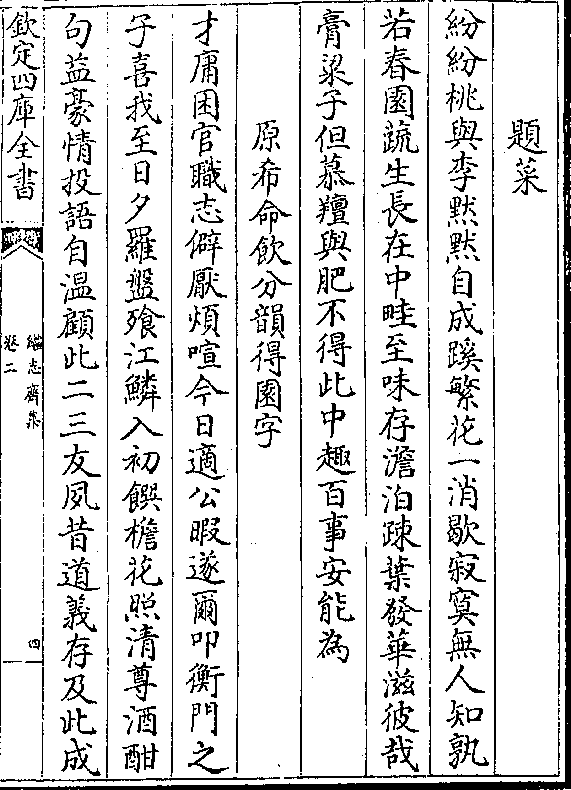 題菜
紛紛桃與李黙黙自成蹊繁花一消歇寂寞無人知孰
若春園蔬生長在中畦至味存澹泊疎葉發華滋彼哉
膏粱子但慕羶與肥不得此中趣百事安能為
原希命飲分韻得園字
才庸困官職志僻厭煩喧今日適公暇遂爾叩衡門之
子喜我至日夕羅盤飱江鱗入初饌檐花照清尊酒酣
句益豪情投語自溫顧此二三友夙昔道義存及此成
欽定四庫全書
繼志齋集
卷二
四